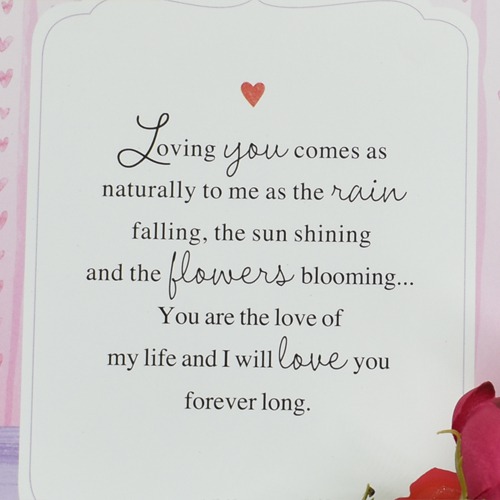 Loving you comes as
naturally to me as the rain
falling, the sun shining
and the flowers blooming...
You are the love of
my life and I will love you
forever long.